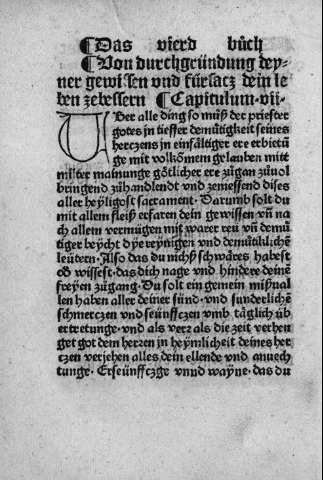 ¶Das vierd bůch
¶Von durchgründung dey⸗
ner gewissen vnd fürsacz dein le
ben zebessern ¶Capitulum·vii·
UBer alle ding so můß der priester
gotes in tieffer demütigkeit seines
herczens in einfältiger ere erbietu̅
ge mit volko̅mem gelauben mitt
milter mainunge götlicher ere zůgan zůuol
bringend zůhandlendt vnd zeniessend dises
aller heyligost sacrament· Darumb solt du
mit allem fleiß erfaren dein gewissen vn̅ na
ch allem vermügen mit warer reü vn̅ demů
tiger beÿcht dÿe reÿnigen vnd demütiklich̅e
leütern· Also das du nichß schwäres habest
od̕ wissest· das dich nage vnd hindere deine̅
freyen zůgang· Du solt ein gemein mißual
len haben aller deiner sünd· vnd sunderliche
schmerczen vnd seünffczen vmb täglich üb
ertretunge· vnd als verr als die zeit verhen
get got dem herren in heymlicheit deines her
czen veriehen alles dein ellende vnd anuech
tunge· Erseünffczge vnnd wayne· das du